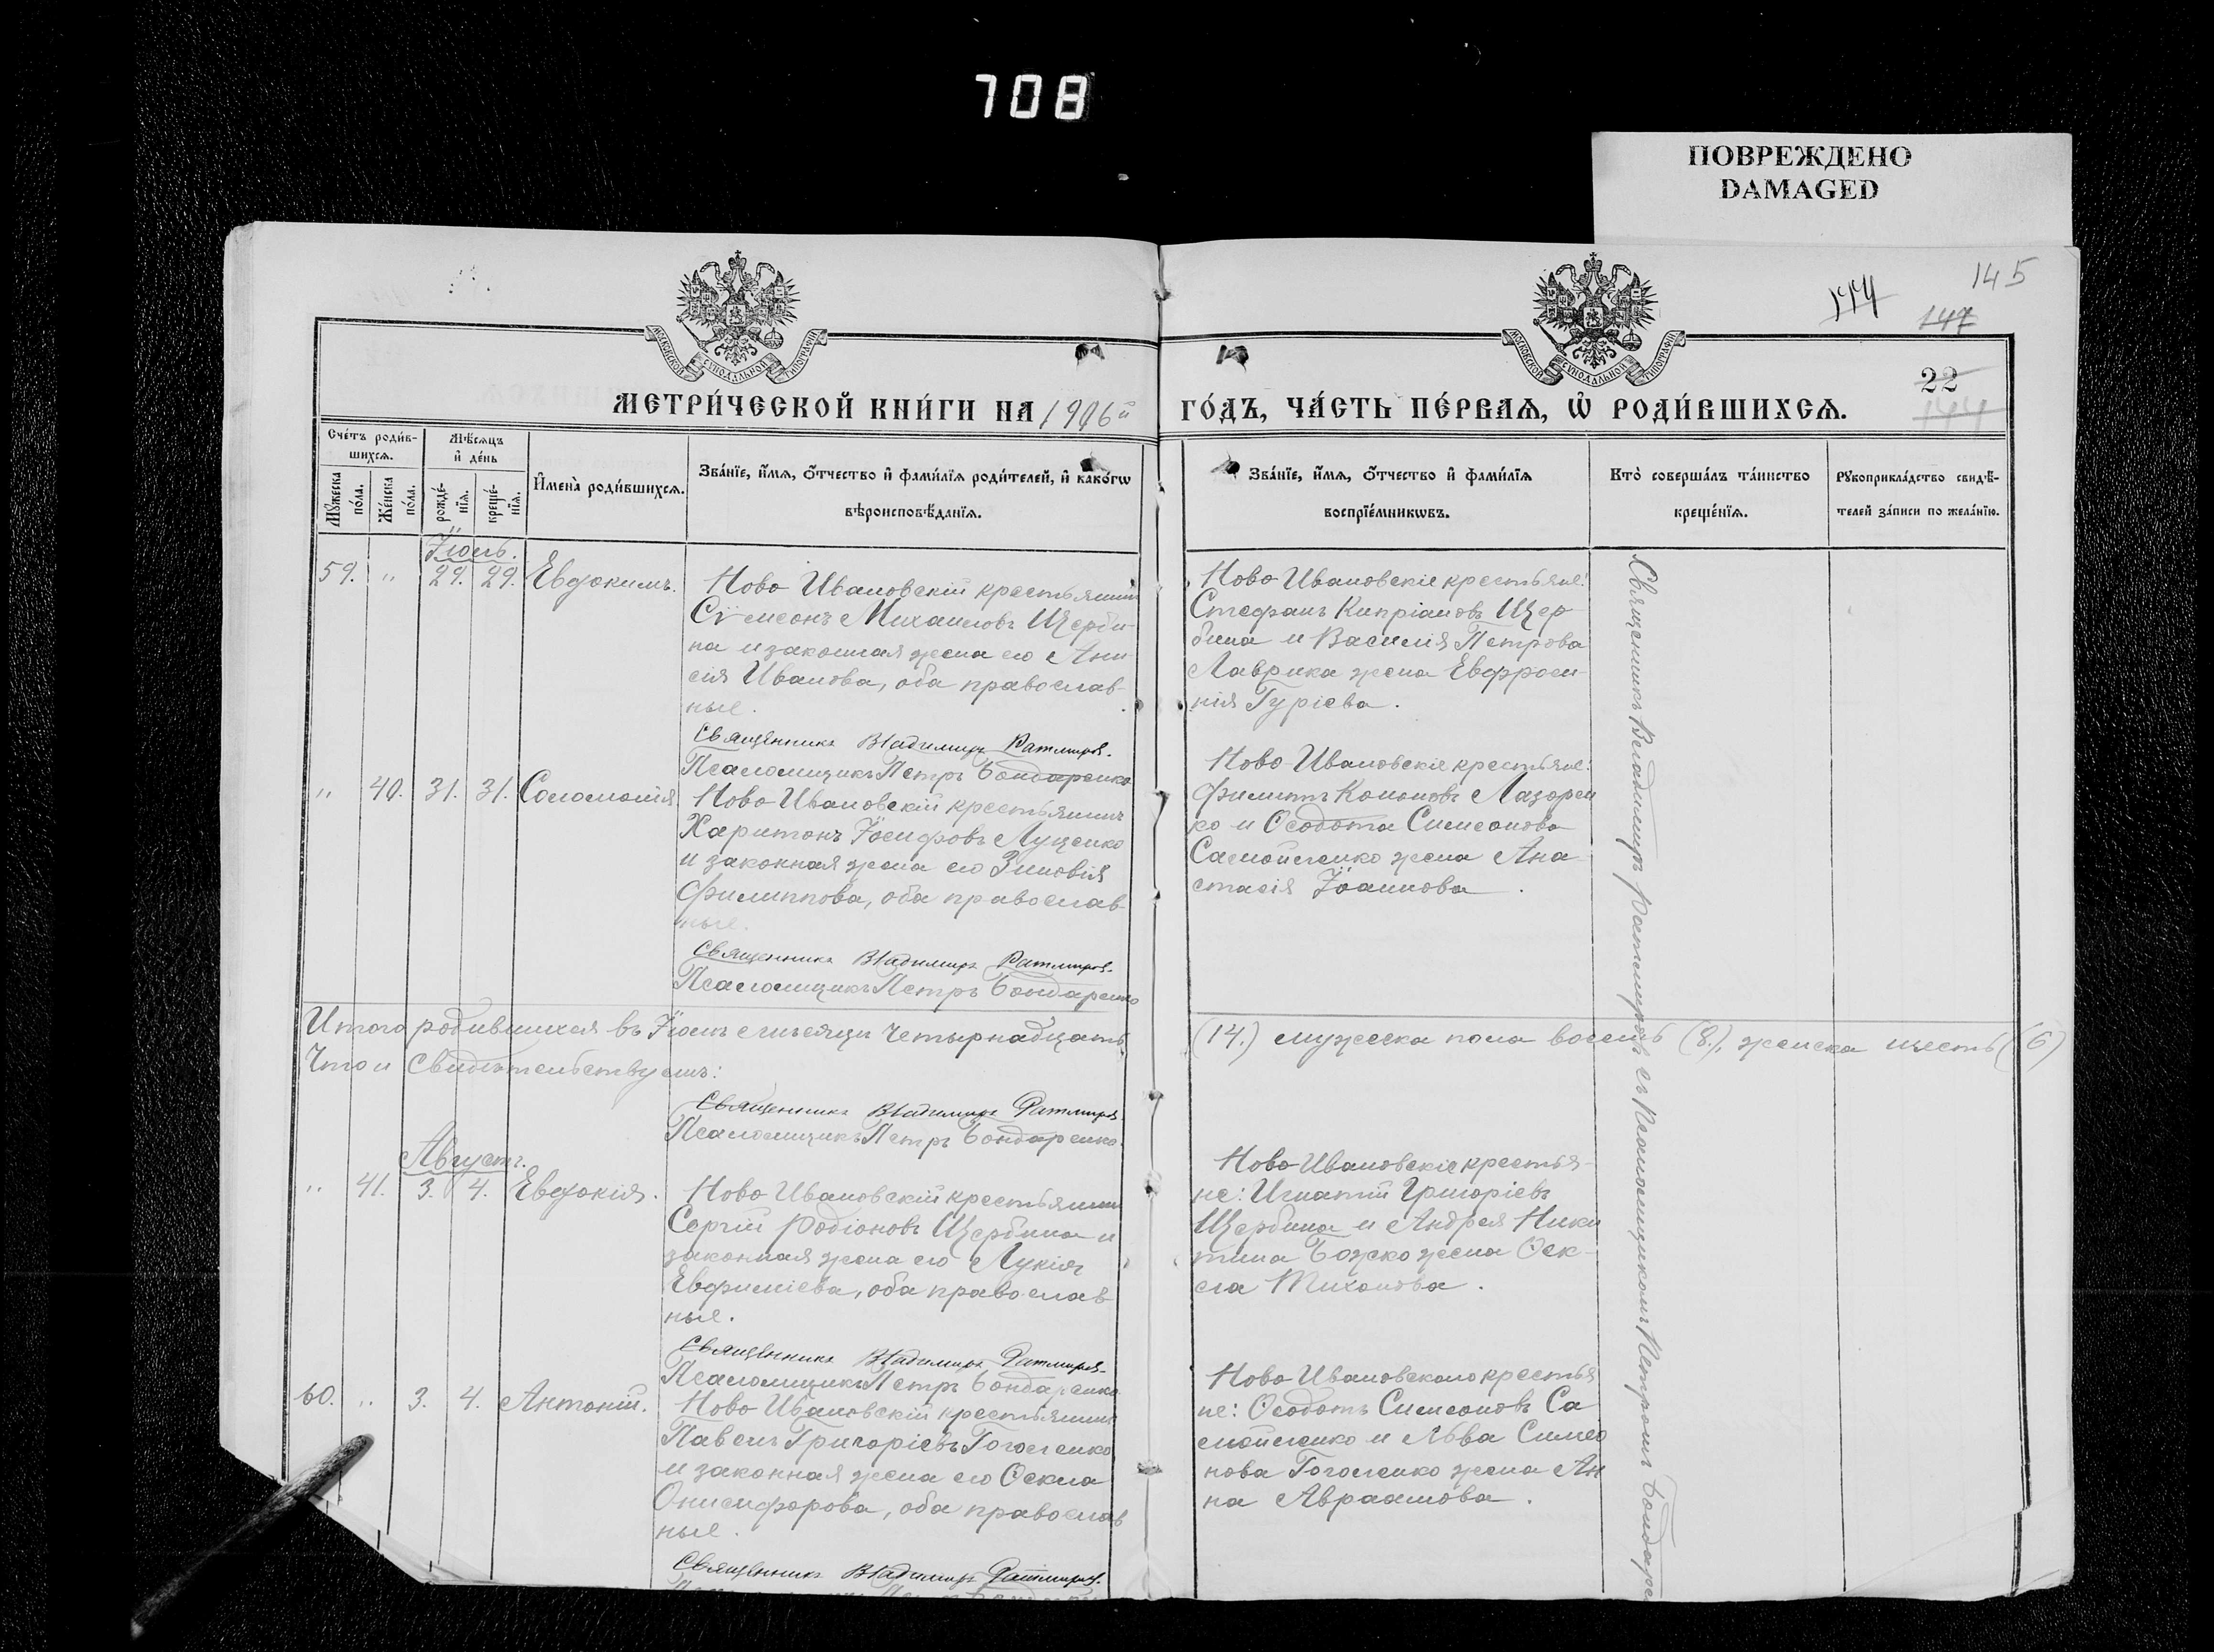 708
ПОВРЕЖДЕНО
DAMAGED
145
147
22
144
МОСКОВСКОЙ СѴНОДАЛЬНОЙ ТИПОГРАФІИ
МОСКОВСКОЙ СѴНОДАЛЬНОЙ ТИПОГРАФІИ
МЕТРИ́ЧЕСКОЙ КНИ́ГИ НА 1906й
ГО́ДЪ, ЧА́СТЬ ПЕ́РВАѦ, Ѡ҆ РОДИ́ВШИХСѦ.
Сче́тъ роди́в-
шихсѧ.
Мѣ́сѧцъ
и҆ де́нь
Мꙋ́жеска
по́ла.
Же́нска
по́ла.
рожде́-
нїѧ.
креще́-
нїѧ.
И҆мена̀ роди́вшихсѧ.
Зва́нїе, и҆́мѧ, ѻ҆́тчество и҆ фами́лїѧ роди́телей, и҆ како́гѡ
вѣроисповѣ́данїѧ.
Зва́нїе, и҆́мѧ, ѻ҆́тчество и҆ фами́лїѧ
воспрїе́мникѡвъ.
Кто̀ соверша́лъ та́инство
креще́нїѧ.
Рꙋкоприкла́дство свидѣ́-
телей за́писи по жела́нїю.
Іюль.
59. " 29. 29. Евдокимъ.
Ново Ивановскій крестьянинъ
Сѵмеонъ Михаиловъ Щерби-
на и законная жена его Ани-
сія Иванова, оба православ-
ные.
Священникъ Владимиръ Ратмировъ.
Псаломщикъ Петръ Бондаренко
Ново Ивановскіе крестьяне:
Стефанъ Кипріановъ Щер-
бина и Василія Петрова
Лаврика жена Евфроси-
нія Гуріева.
" 40. 31. 31. Соломонія
Ново Ивановскій крестьянинъ
Харитонъ Іосифовъ Луценко
и законная жена его Зиновія
Филиппова, оба православ
ные.
Священникъ Владимиръ Ратмировъ.
Псаломщикъ Петръ Бондаренко
Ново-Ивановскіе крестьяне:
Филиппъ Кононовъ Лазорен
ко и Ѳеодота Симеонова
Самойленко жена Ана-
стасія Іоаннова.
Итого родившихся въ Іюлѣ мѣсяцѣ четырнадцать
(14.) мужеска пола восемь (8.), женска шесть (6)
Что и свидѣтельствуемъ:
Священникъ Владимиръ Ратмировъ
Псаломщикъ Петръ Бондаренко.
Августъ.
" 41. 3. 4. Евдокія.
Ново Ивановскій крестьянинъ
Сергій Родіоновъ Щербина и
законная жена его Лукія
Евфиміева, оба православ
ные.
Священникъ Владимиръ Ратмировъ.
Псаломщикъ Петръ Бондаренко
Ново-Ивановскіе крестья-
не: Игнатій Григоріевъ
Щербина и Андрея Ники
тина Божко жена Ѳек-
ла Тихонова.
60. " 3. 4. Антоній.
Ново Ивановскій крестьянинъ
Павелъ Григоріевъ Гоголенко
и законная жена его Ѳекла
Онисифорова, оба православ
ные.
Священникъ Владимиръ Ратмировъ.
Ново Ивановского крестья
не: Ѳеодотъ Симеоновъ Са
мойленко и Льва Симео
нова Гоголенко жена Ан
на Авраамова.
Священникъ Владимиръ Ратмировъ съ Псаломщикомъ Петромъ Бондаре